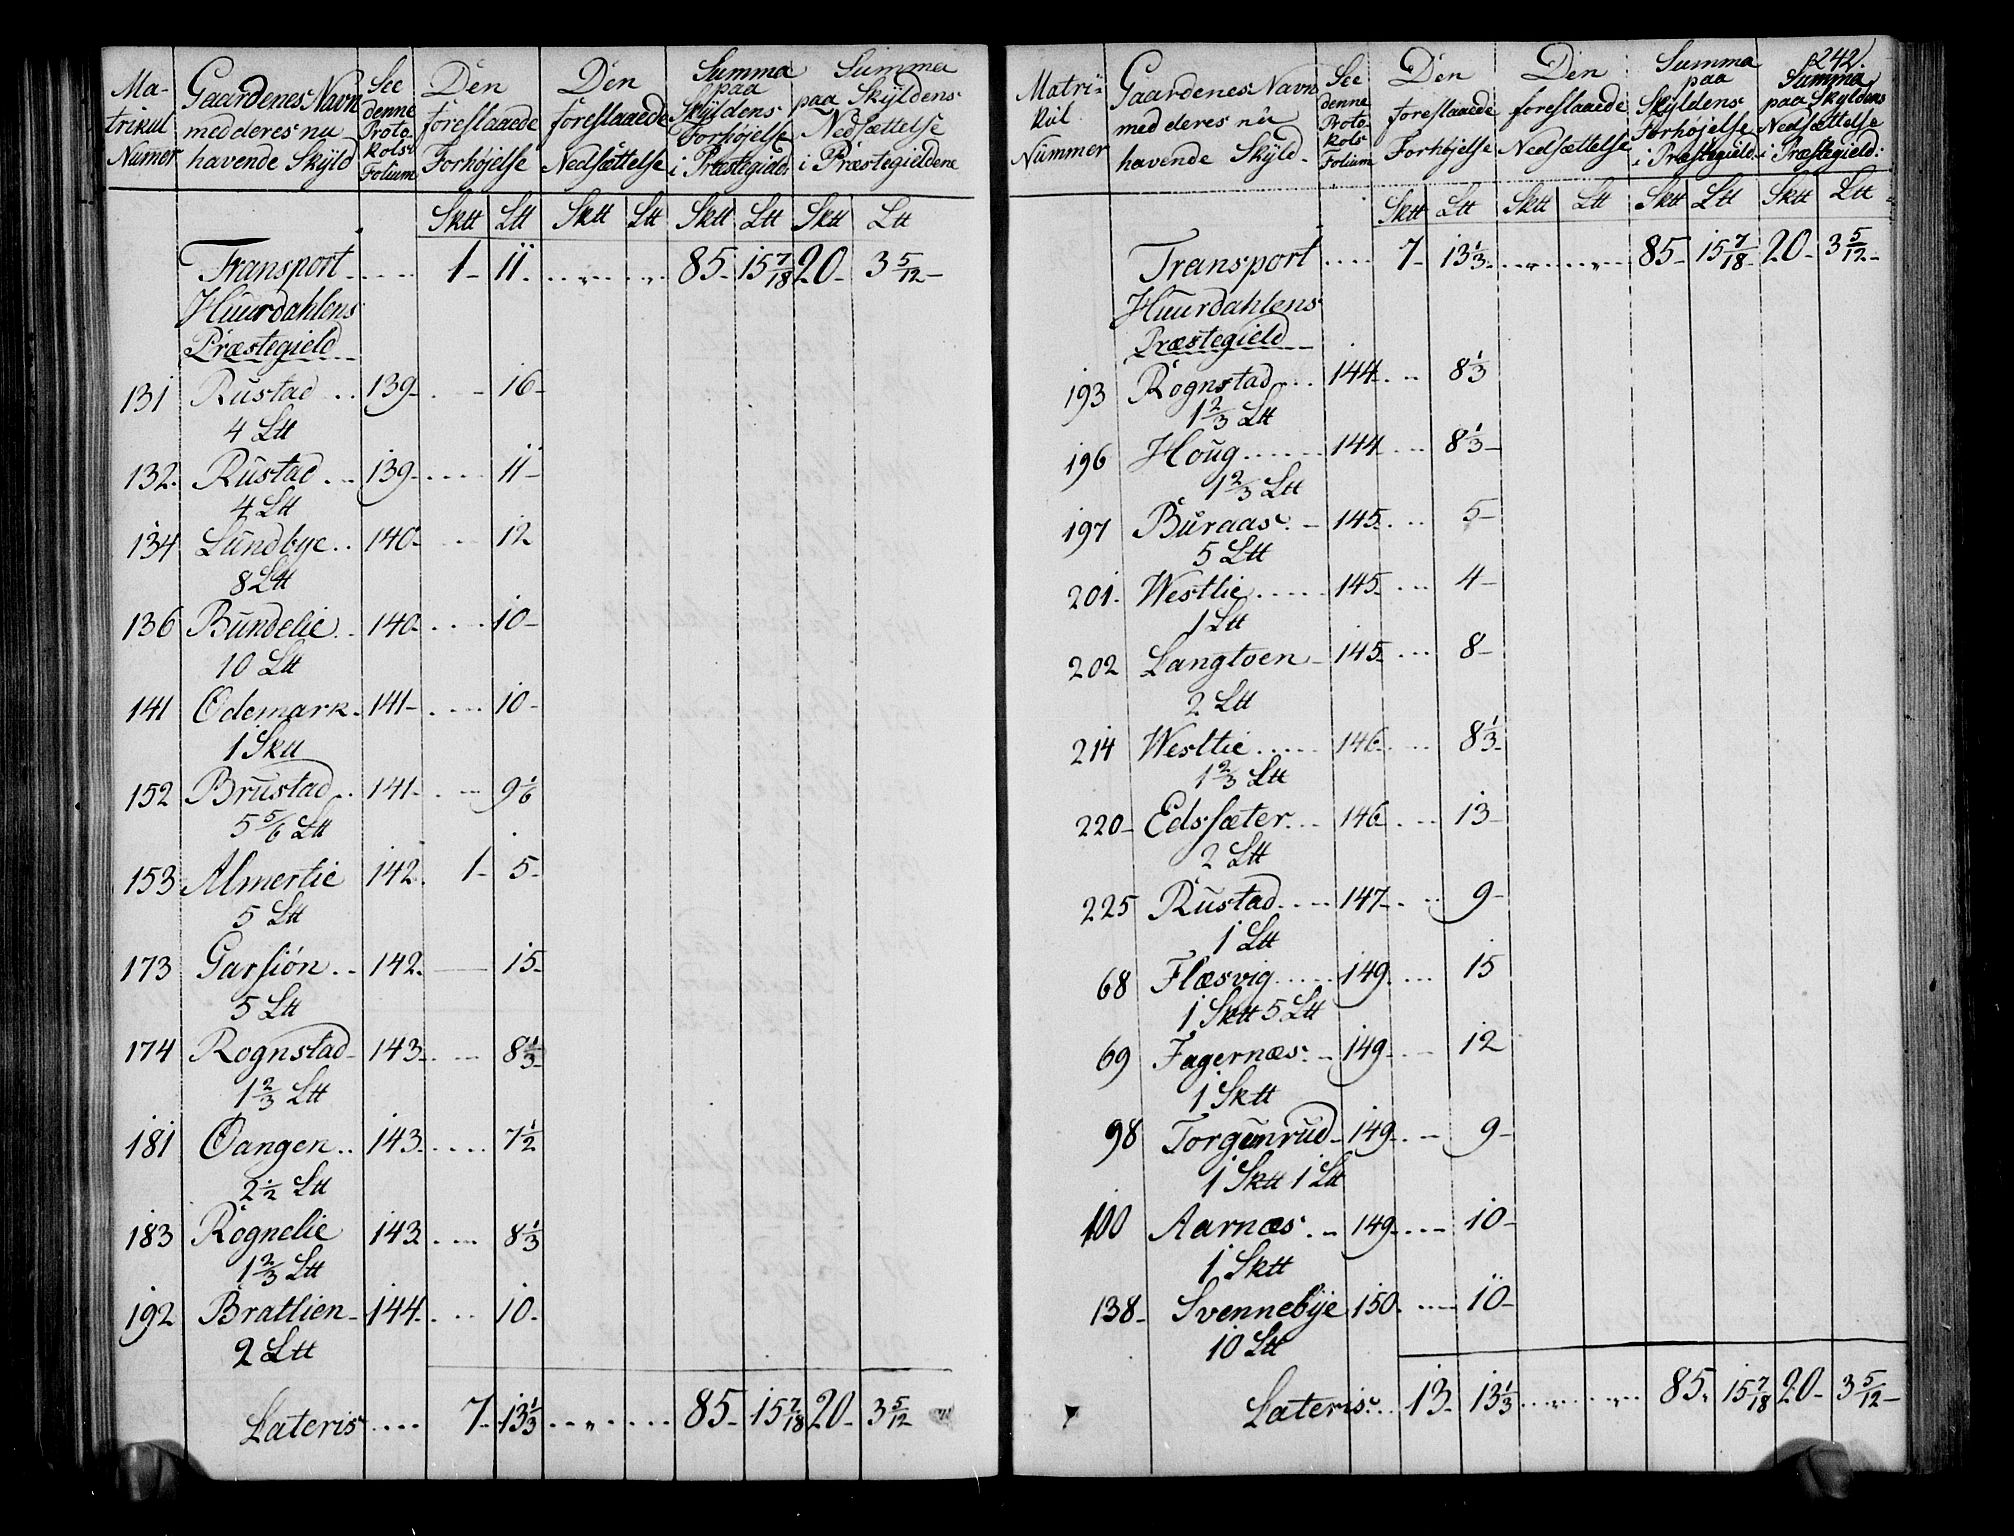 Ma-
trikul
Numer
Gaardenes Navn
med deres nu
havende Skyld
See
denne
Proto-
kols
Folium
Den
foreslaaede
Forhøjelse
Den
foreslaaede
Nedsættelse
Summa
paa
Skyldens
Forhøjelse
i Præstegield:
Summa
paa Skyldens
Nedsættelse
i Præstegieldene
Sktt Ltt Sktt Ltt Sktt Ltt Sktt Ltt
Transport 1- 11. 85- 15 7/18 20- 3 5/12-
Huurdahlens
Præstegield
131 Rustad 139- 16-
4 Ltt
132. Rustad 139- 11-
4 Ltt
134 Lundbye 140- 12
8 Ltt
136 Bundelie 140- 10-
10 Ltt
141 Ødemark 141- 10-
1 Sktt
152 Brustad 141- 9 1/6
5 5/6 Ltt
153 Almerlie 142. 1- 5-
5 Ltt
173 Garsiøn 142. 15-
5 Ltt
174 Rognstad 143- 8 1/3-
1 2/3 Ltt
181 Oangen 143. 7 1/2
2 1/2 Ltt
183 Rognelie 143. 8 1/3
1 2/3 Ltt
192 Brattlien 144- 10.
2 Ltt
Lateris 7- 13 1/3 85- 15 7/18 20- 3 5/12-
242.
Matri-
kul
Nummer
Gaardenes Navn
med deres nu
havende Skyld
See
denne
Proto
kols
Folium
Den
foreslaaede
Forhøjelse
Den
foreslaaede
Nedsættelse
Summa
paa
Skyldens
Forhøjelse
i Præstegield.
Summa
paa Skyldens
Nedsættelse
i Præstegield:
Sktt Ltt Sktt Ltt Sktt Ltt Sktt Ltt
Transport 7- 13 1/3- 85- 15 7/18- 20- 3 5/12-
Huurdahlens
Præstegield
193 Rognstad 144- 8 1/3
1 2/3 Ltt
196 Houg 144 8 1/3-
1 2/3 Ltt
197 Buraas 145. 5-
5 Ltt
201. Westlie 145- 4-
1 Ltt
202 Langtoen 145- 8-
2 Ltt
214 Westlie 146- 8 1/3-
1 2/3 Ltt
220- Edsæter 146 13-
2 Ltt
225 Rustad 147- 9-
1 Ltt
68 Flæsvig 149- 15
1 Sktt 5 Ltt
69 Fagernæs 149- 12
1 Sktt
98 Torgunrud 149- 9-
1 Sktt 1 Ltt
100 Aarnæs 149- 10-
1 Sktt
138- Svennebye 150. 10-
10 Ltt
Lateris 13- 13 1/3 85- 15 7/18 20- 3 5/12-